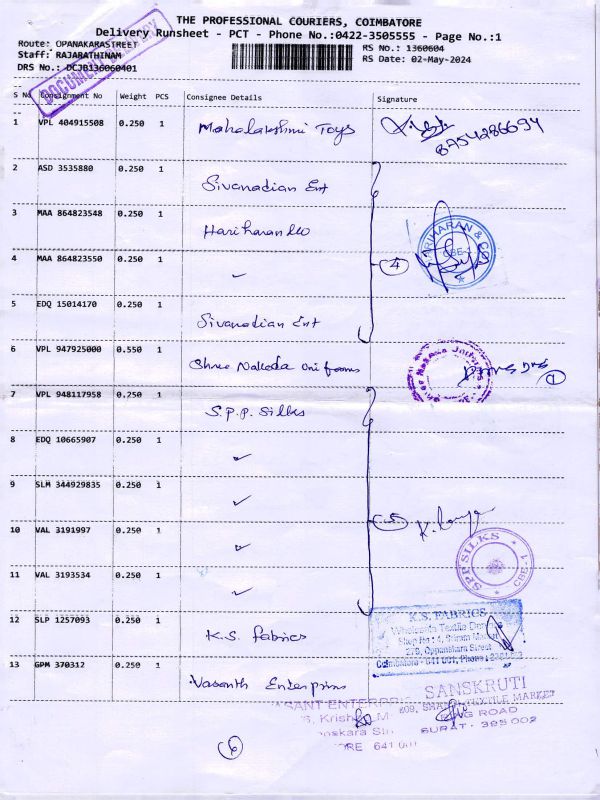 THE PROFESSIONAL COURIERS, COIMBATORE
Delivery Runsheet - PCT - Phone No.:0422-3505555 - Page No.:1
Route: OPANAKARASTREET
Staff: RAJARATHINAM
DRS No.: DCJB136060401
RS No.: 1360604
RS Date: 02-May-2024
DOCUMENT
S No Consignment No Weight PCS Consignee Details Signature
1 VPL 404915508 0.250 1 Mahalakshmi Toys
8754286694
2 ASD 3535880 0.250 1 Sivanadian Ent
3 MAA 864823548 0.250 1 Hariharan
HARIHARAN & CO
CBE-1
4 MAA 864823550 0.250 1 4
5 EDQ 15014170 0.250 1 Sivanadian Ent
6 VPL 947925000 0.550 1 Shree Nakoda Uniforms 1
7 VPL 948117958 0.250 1 S.P.P. Silks
8 EDQ 10665907 0.250 1
9 SLM 344929835 0.250 1
5
10 VAL 3191997 0.250 1
SPP SILKS
CBE-1
11 VAL 3193534 0.250 1
12 SLP 1257093 0.250 1 K.S. Fabrics
K.S. FABRICS
Wholesale Textile
Shop No: 4,
279, Oppanakara Street
Coimbatore - 641 001, Phone :
13 GPM 370312 0.250 1 Vasanth Enterprises
SANT ENTERPRI
Krish
641 001
SANSKRUTI
TEXTILE MARKET
RING ROAD
SURAT - 395 002
6